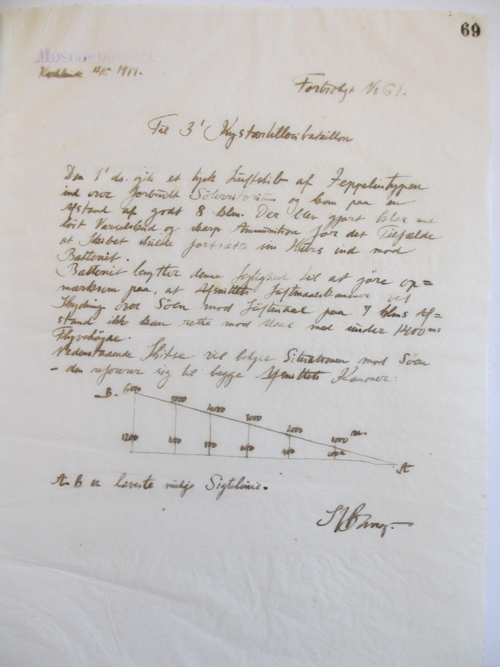 69
Mosedebatteri.
Karlslunde 12/6 1917.
Fortroligt No 61.
Til 3' Kystartilleribataillon
Den 1' ds. gik et tysk Luftskib af Zeppelintypen
ind over forbudt Søterritorium og kom paa en
Afstand af godt 8 klm. Der blev gjort klar med
løst Varselskud og skarp Ammunition for det Tilfælde
at Skibet skulde fortsætte sin Kurs ind mod
Batteriet.
Batteriet benytter denne Lejlighed til at gøre op=
mærksom paa, at Afsnittets Luftmaalskanoner ved
Skydning over Søen mod Luftmaal paa 7 klms Af=
stand ikke kan rette mod Maal med under 1400 ms
Flyvehøjde.
Nedenstaaende Skitse vil belyse Situationen mod Søen
- den refererer sig til begge Afsnittets Kanoner:
B. 6000 5000 4000 3000 2000 1000 m.
1200
A
A-B er laveste mulige Sigtelinie.